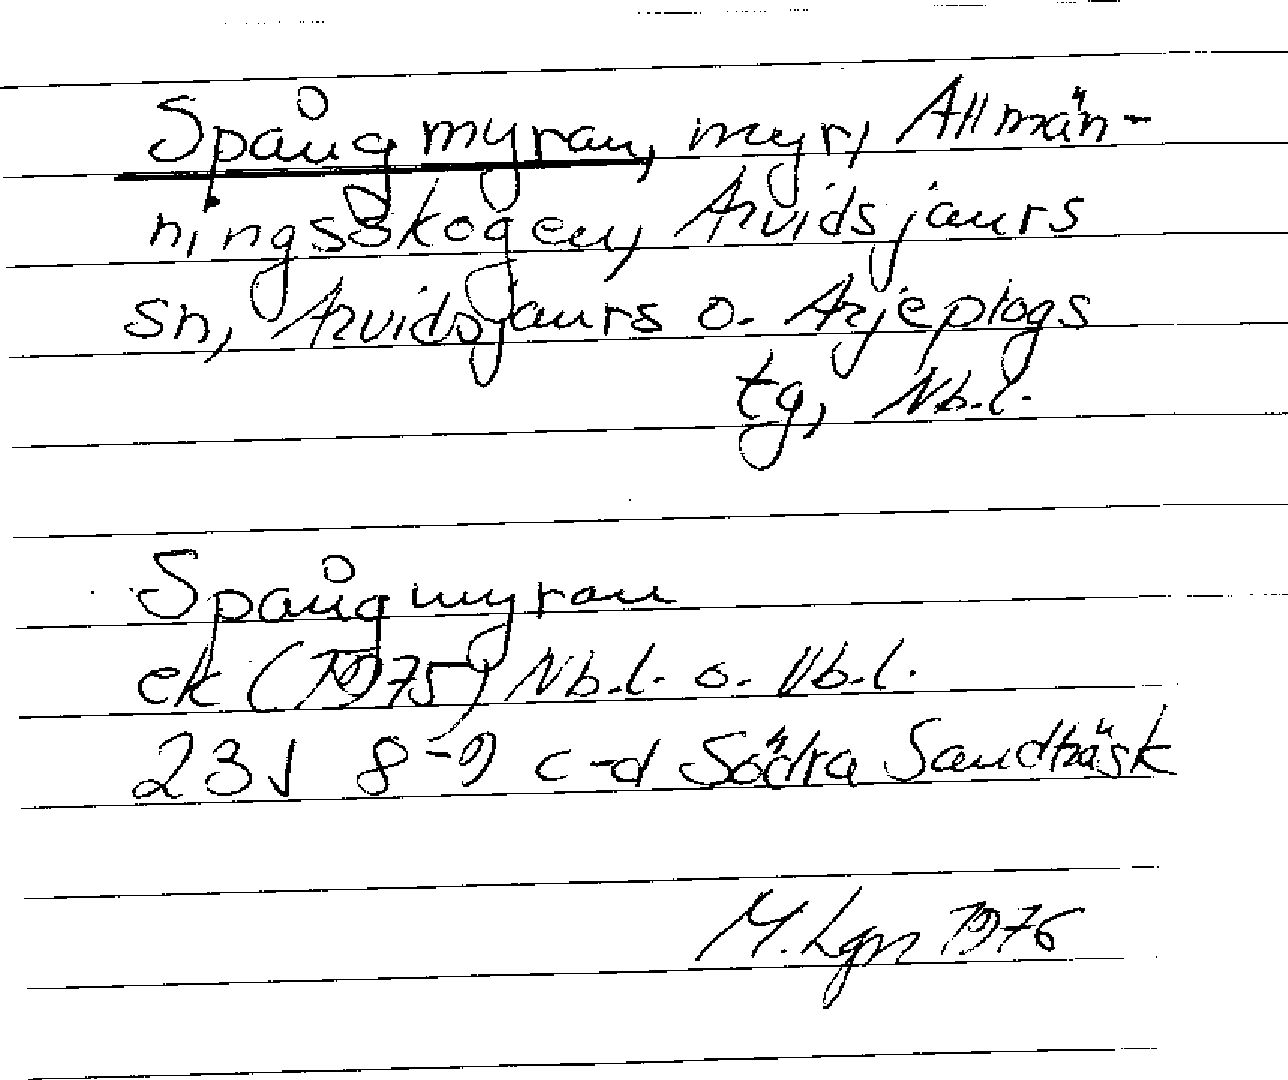 Spångmyran, myr, Allmän-
ningsskogen, Arvidsjaurs
sn, Arvidsjaurs o. Arjeplogs
tg, Nb.l.
Spångmyran
ek (1975) Nb.l. o. Vb.l.
23J 8-9 c-d Södra Sandträsk
M. Lgn 1976